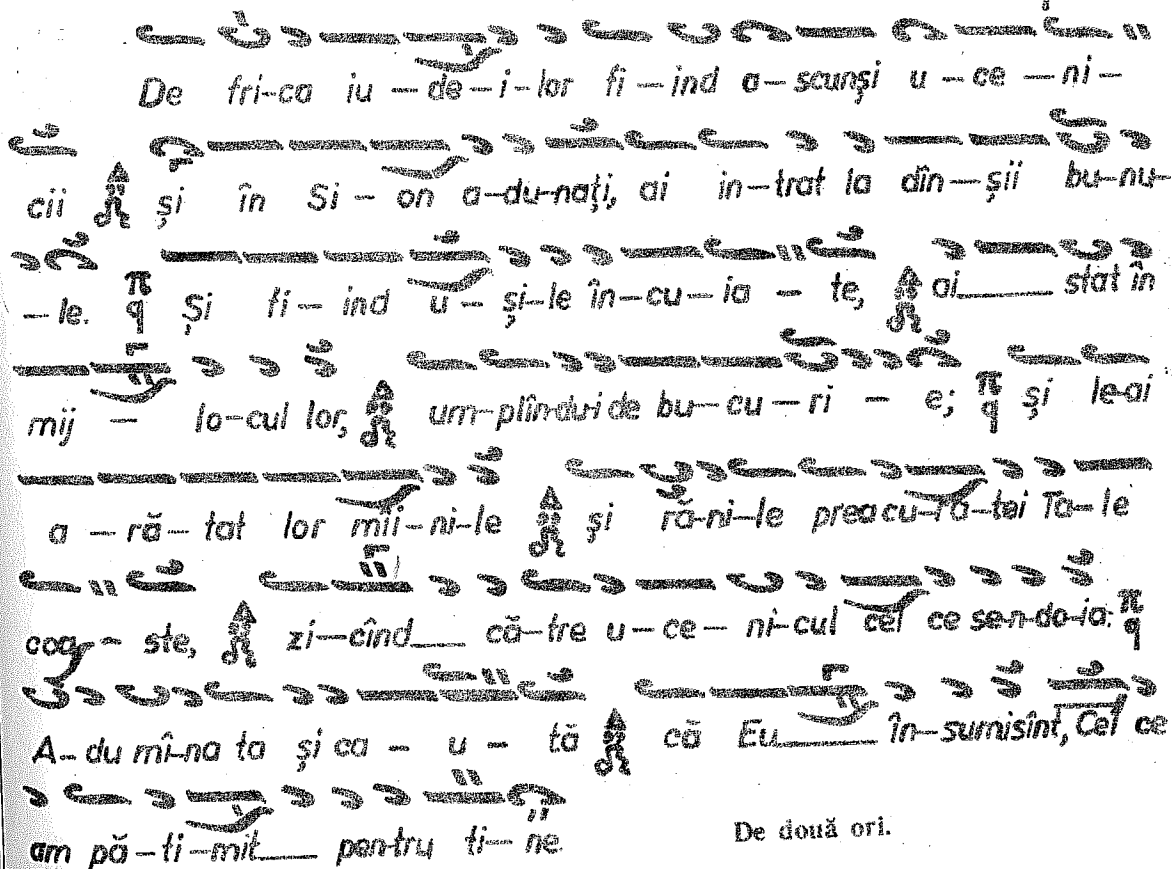 De fri-ca iu-de-i-lor fi-ind a-scunși u-ce-ni-
cii și în Si-on a-du-nați, ai in-trat la dîn-șii bu-nu-
-le. π q Și fi-ind u-și-le în-cu-ia-te, ai___ stat în
mij-lo-cul lor, um-plîndu-i de bu-cu-ri-e; π q și le-ai
a-ră-tat lor mîi-ni-le și ră-ni-le preacu-ra-tei Ta-le
coa-ste, zi-cînd___ că-tre u-ce-ni-cul cel ce se-n-do-ia: π q
A-du mî-na ta și ca-u-tă că Eu___ în-sumisînt, Cel ce
am pă-ti-mit___ pen-tru ti-ne.
De două ori.